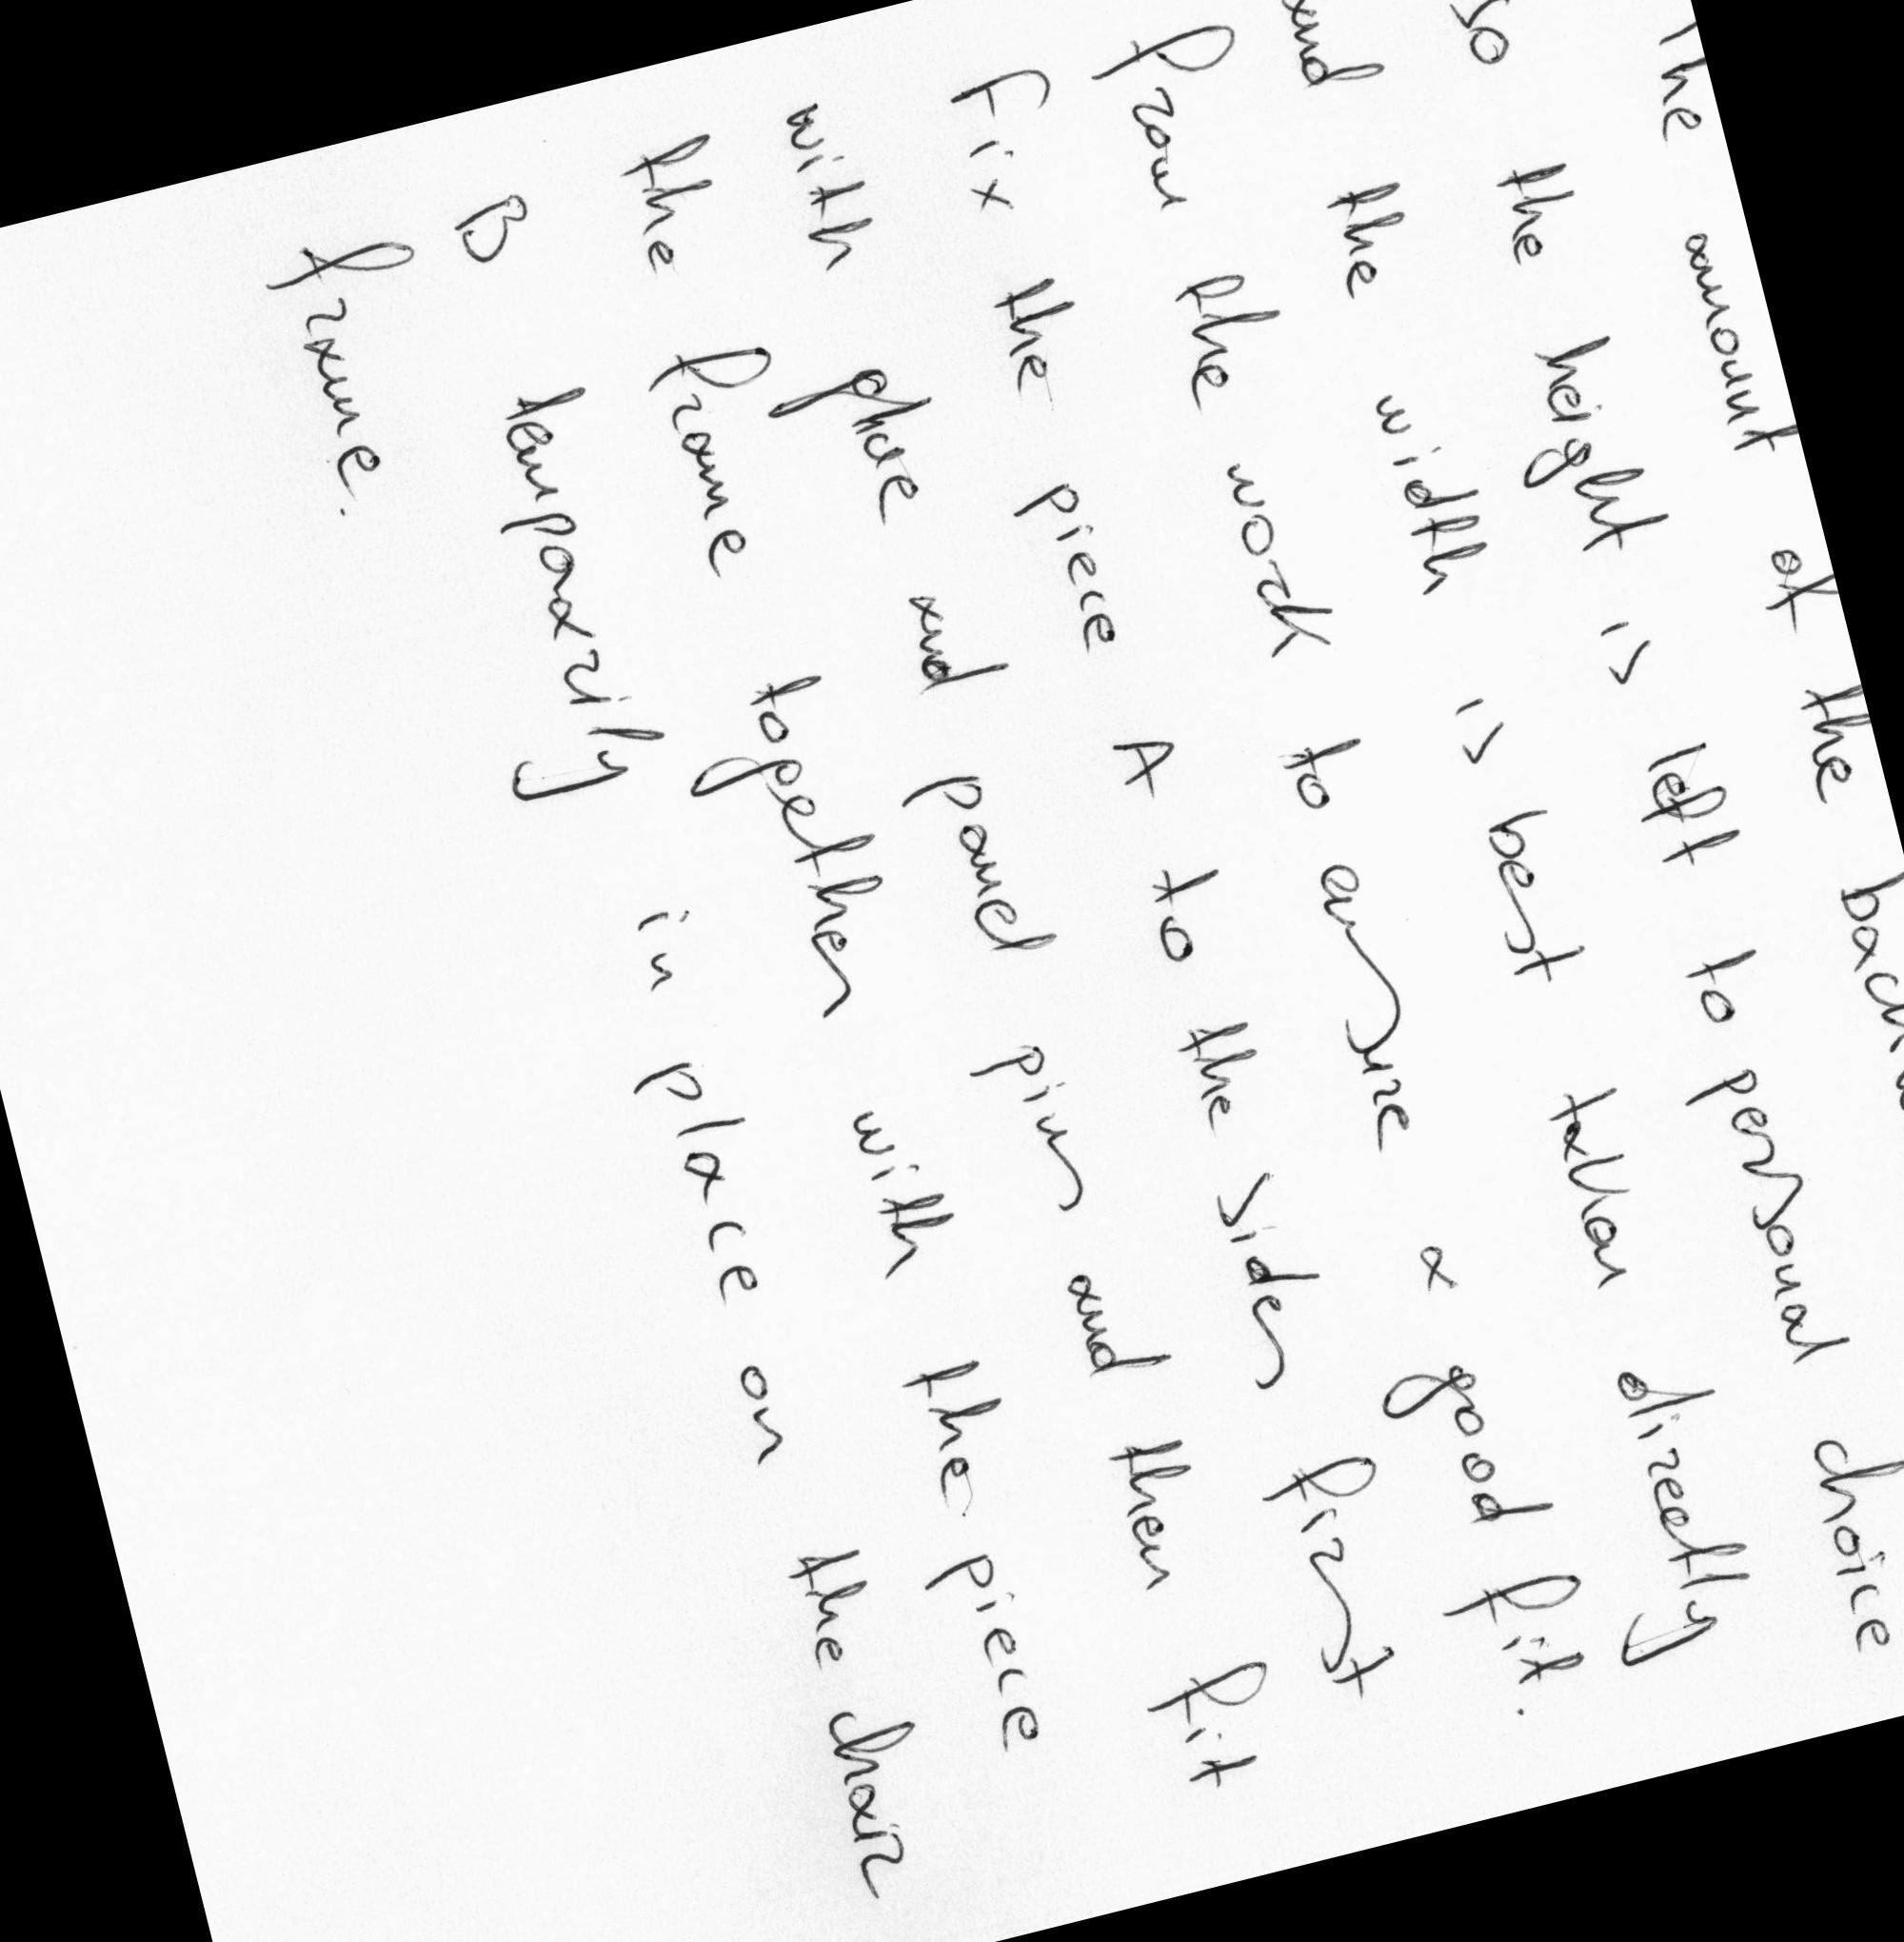 The amount of the
so the height is left to personal choice
and the width is best taken directly
from the work to ensure a good fit.
Fix the piece A to the sides first
with glue and panel pins and then fit
the frame together with the piece
B temporarily in place on the chair
frame.